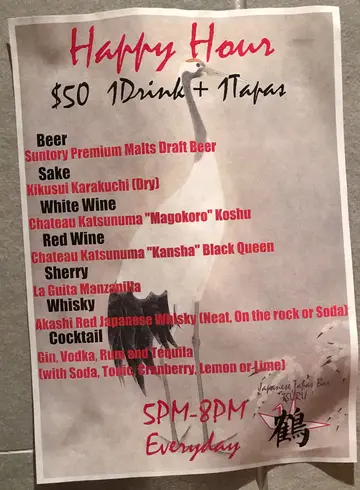 Happy Hour
$50 1Drink + 1Tapas
Beer
Suntory Premium Malts Draft Beer
Sake
Kikusui Karakuchi (Dry)
White Wine
Chateau Katsunuma "Magokoro" Koshu
Red Wine
Chateau Katsunuma "Kansha" Black Queen
Sherry
La Guita Manzanilla
Whisky
Akashi Red Japanese Whisky (Neat, On the rock or Soda)
Cocktail
Gin, Vodka, Rum and Tequila
(with Soda, Tonic, Cranberry, Lemon or Lime)
5PM-8PM
Everyday
Japanese Tapas Bar
TSURU
鶴